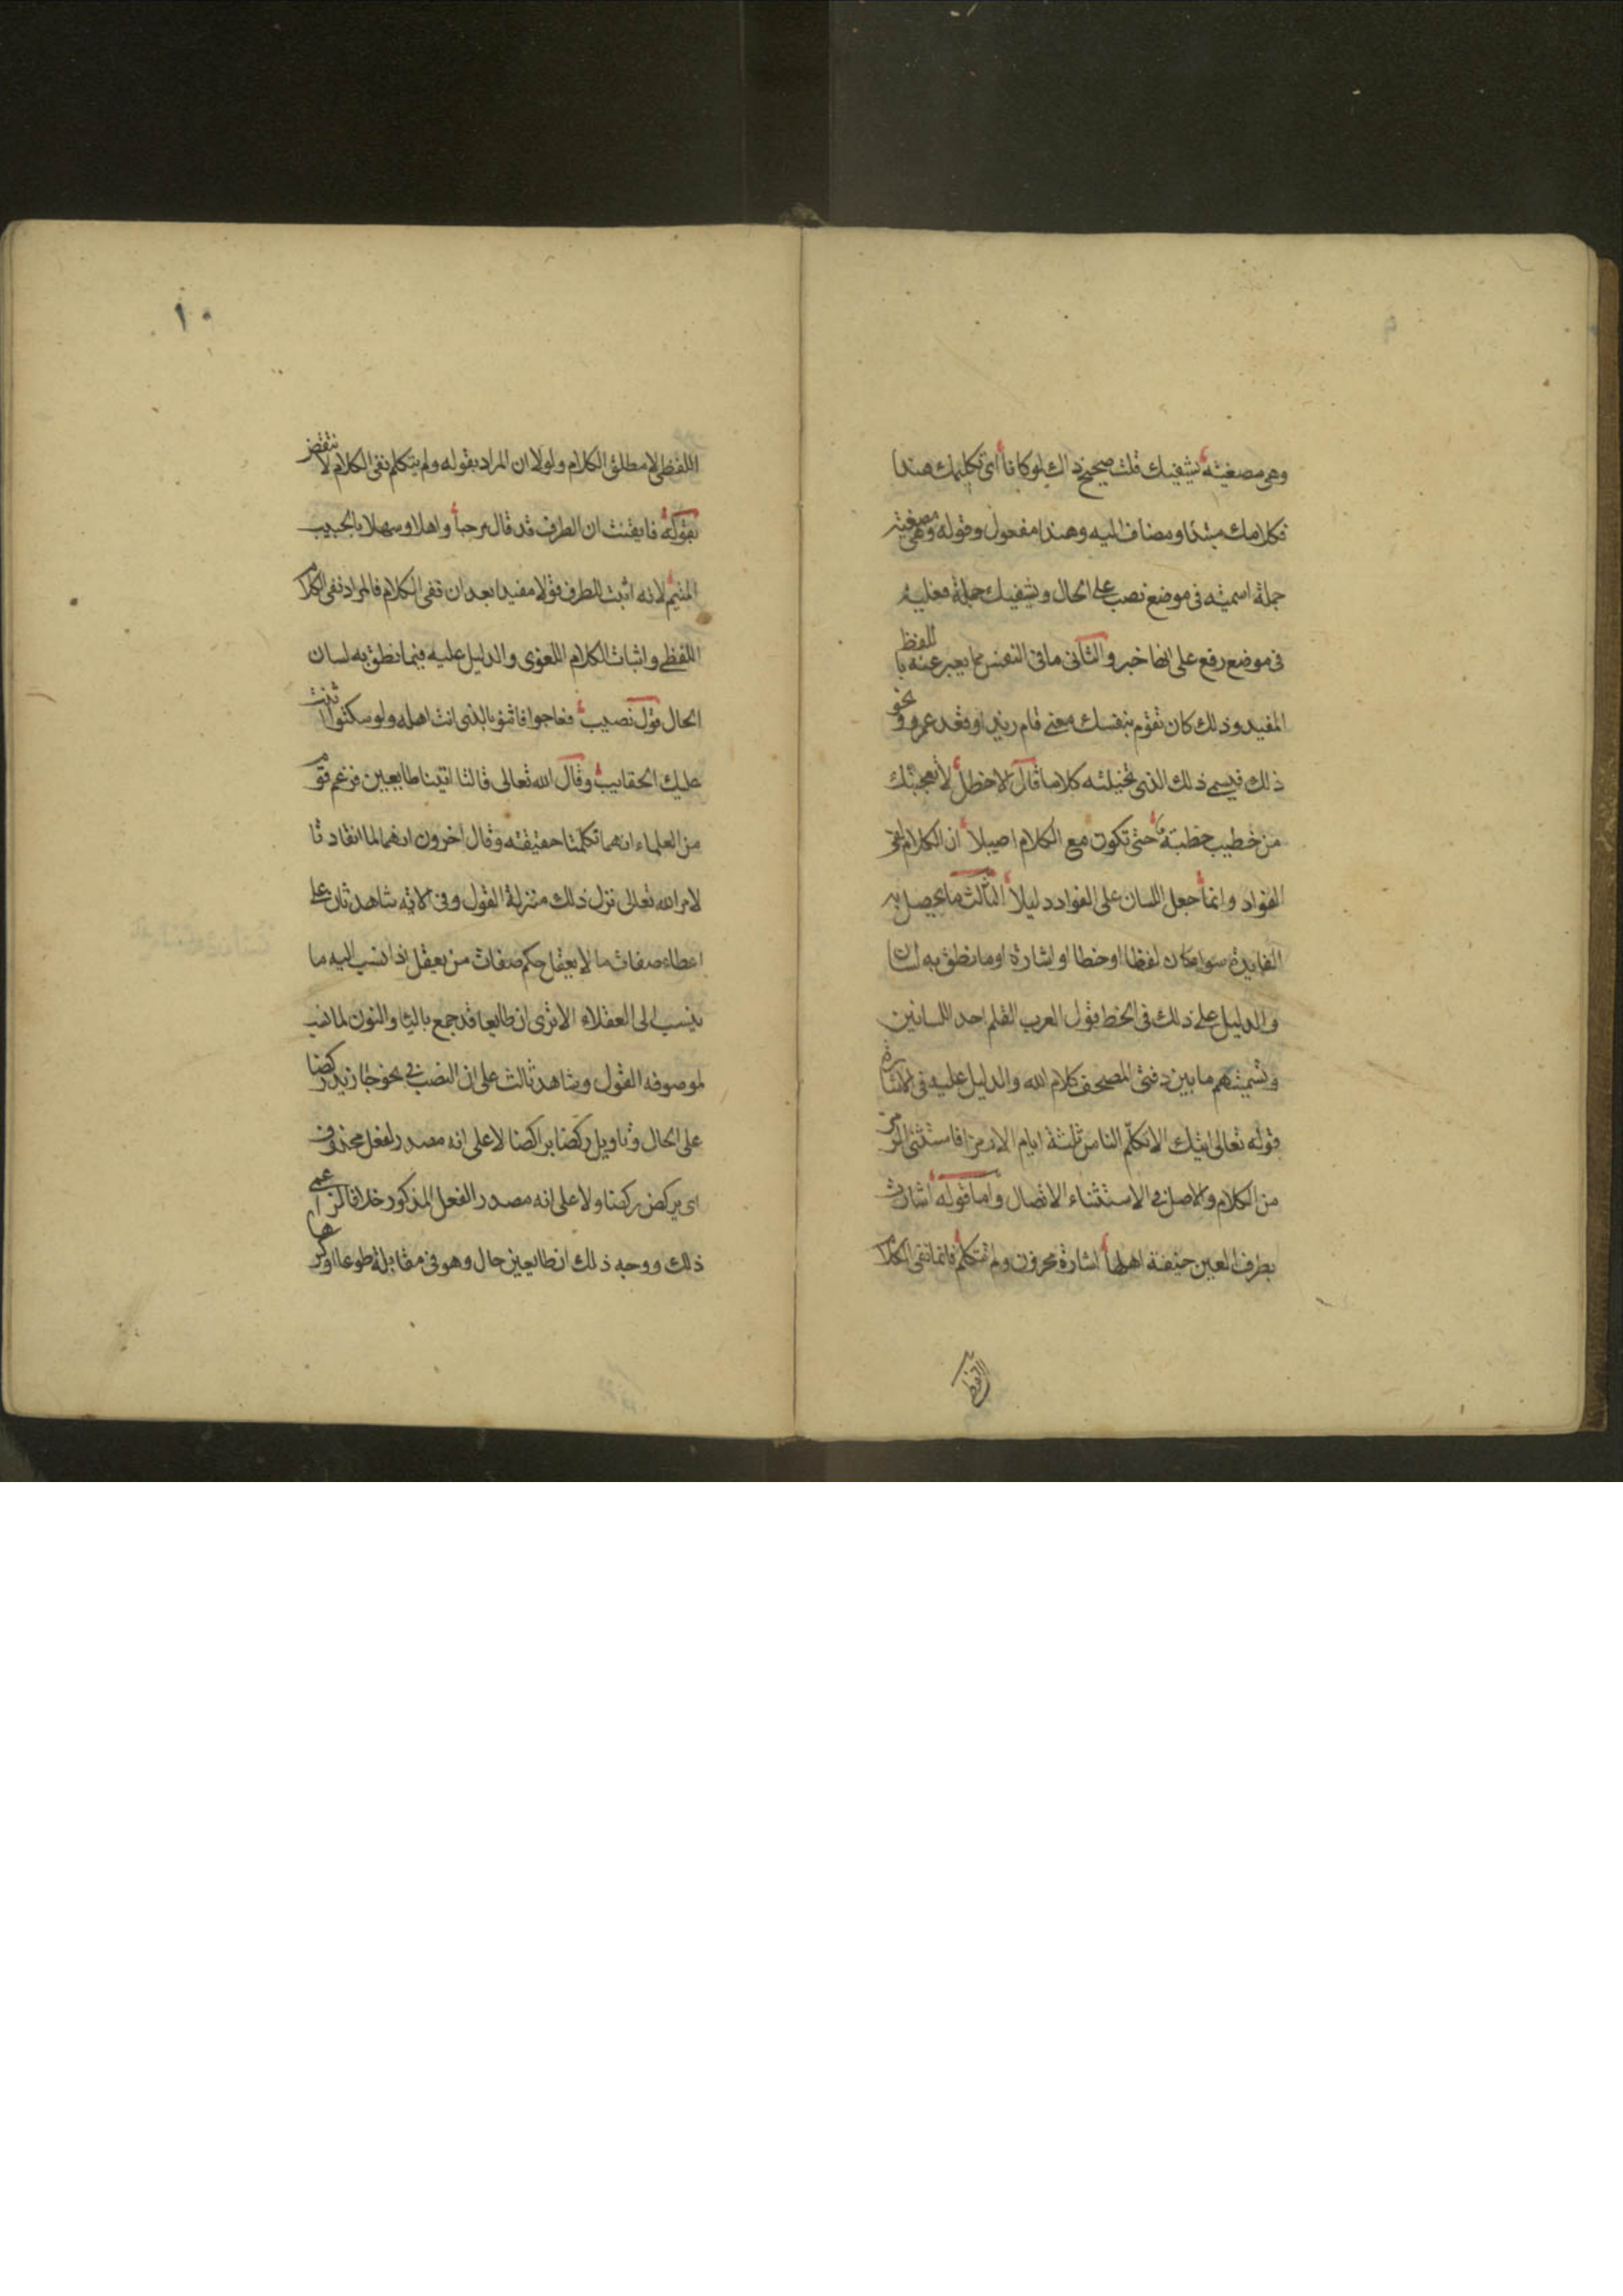 وهي مصغية يشفيك قلت صحيح ذاك لو كانا أي تكليمك هندا
فكلامك مبتدا ومضاف اليه وهندا مفعول وقوله وهي مصغية
جملة اسمية في موضع نصب على الحال ويشفيك جملة فعلية
في موضع رفع على انها خبر والثاني ما في النفس مما يعبر عنه باللفظ
المفيد وذلك كان تقوم بنفسك معنى قام زيد او قعد عمرو ونحو
ذلك فيسمى ذلك الذي تخيلته كلاما قال الاخطل لا تعجبنك
من خطيب خطبة حتى تكون مع الكلام اصيلا ان الكلام لفي
الفواد وانما جعل اللسان على الفواد دليلا الثالث ما يحصل به
الفايدة سواء كان لفظا او خطا او اشارة او ما نطق به لسان
والدليل على ذلك في الخط قول العرب القلم احد اللسانين
وتسميتهم ما بين دفتي المصحف كلام الله والدليل عليه في الاشارة
قوله تعالى ايتك الا تكلم الناس ثلثة ايام الا رمزا فاستثنى الرمز
من الكلام والاصل في الاستثناء الاتصال واما قوله أشارت
بطرف العين خيفة اهلها اشارة محزون ولم تتكلم فانما نفى الكلام
اللفظي
١٠
اللفظي لا مطلق الكلام ولولا ان المراد بقوله ولم يتكلم نفي الكلام لا نتقض
بقوله فايقنت ان الطرف قد قال مرحبا واهلا وسهلا بالحبيب
المتيم لانه اثبت للطرف قولا مفيدا بعد ان نفى الكلام فالمراد نفي الكلام
اللفظي واثبات الكلام اللغوي والدليل عليه فيما نطق به لسان
الحال قول نصيب فعاجوا فاثنوا بالذي انت اهله ولو سكتوا اثنت
عليك الحقايب وقال الله تعالى قالتا اتينا طايعين فزعم قوم
من العلماء انهما تكلمتا حقيقته وقال اخرون انهما لما انقادتا
لامر الله تعالى نزل ذلك منزلة القول وفي الاية شاهد ثان على
اعطاء صفات ما لا يعقل حكم صفات من يعقل اذا نسب اليه ما
ينسب الى العقلاء الا ترى ان طايعا قد جمع باليا والنون لما نسب
لموصوفه القول وشاهد ثالث على ان النصب في نحو جا زيد ركضا
على الحال وتاويل ركضا براكضا لا على انه مصدر لفعل محذوف
اي يركض ركضا ولا على انه مصدر الفعل المذكور خلافا لزاعمي
ذلك ووجه ذلك ان طايعين حال وهو في مقابلة طوعا او كرها